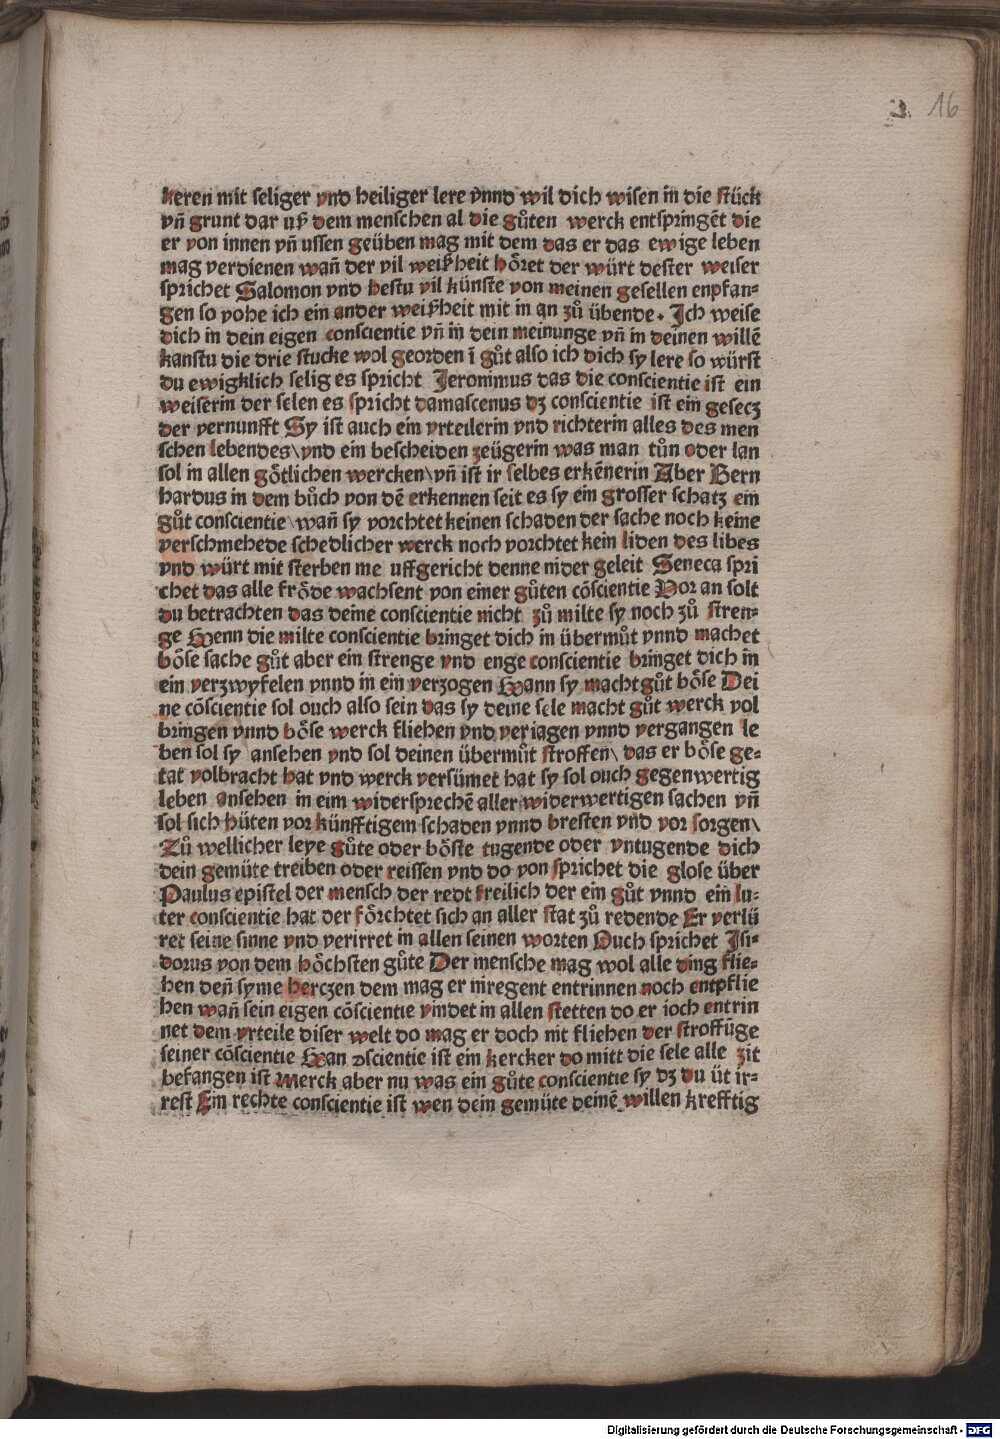 16
keren mit seliger vnd heiliger lere vnnd wil dich wisen in die stück
vñ grunt dar uß dem menschen al die gůten werck entspringẽt die
er von innen vñ ussen geüben mag mit dem das er das ewige leben
mag verdienen wañ der vil weißheit hõret der würt dester weiser
sprichet Salomon vnd hestu vil künste von meinen gesellen enpfan-
gen so vohe ich ein ander weißheit mit in an zů übende. Ich weise
dich in dein eigen conscientie vñ in dein meinunge vñ in deinen willẽ
kanstu die drie stucke wol georden ĩ gůt also ich dich sy lere so würst
du ewigklich selig es spricht Jeronimus das die conscientie ist ein
weiserin der selen es spricht damascenus dz conscientie ist ein gesecz
der vernunfft Sy ist auch ein vrteilerin vnd richterin alles des men
schen lebendes\ vnd ein bescheiden zeügerin was man tůn oder lan
sol in allen götlichen wercken\ vñ ist ir selbes erkẽnerin Aber Bern
hardus in dem bůch von dẽ erkennen seit es sy ein grosser schatz ein
gůt conscientie\ wañ sy vorchtet keinen schaden der sache noch keine
verschmehede schedlicher werck noch vorchtet kein liden des libes
vnd würt mit sterben me uffgericht denne nider geleit Seneca spri
chet das alle frõde wachsent von einer gůten cõscientie Vor an solt
du betrachten das deine conscientie nicht zů milte sy noch zů stren-
ge Wenn die milte conscientie bringet dich in übermůt vnnd machet
böse sache gůt aber ein strenge vnd enge conscientie bringet dich in
ein verzwyfelen vnnd in ein verzogen Wann sy macht gůt böse Dei
ne cõscientie sol ouch also sein das sy deine sele macht gůt werck vol
bringen vnnd böse werck fliehen vnd veriagen vnnd vergangen le
ben sol sy ansehen vnd sol deinen übermůt stroffen\ das er böse ge-
tat volbracht hat vnd werck versümet hat sy sol ouch gegenwertig
leben ansehen in eim widersprechẽ aller widerwertigen sachen vñ
sol sich hüten vor künfftigem schaden vnnd bresten vnd vor sorgen\
Zů wellicher leye gůte oder böste tugende oder vntugende dich
dein gemüte treiben oder reissen vnd do von sprichet die glose über
Paulus epistel der mensch der redt freilich der ein gůt vnnd ein lu-
ter conscientie hat der förchtet sich an aller stat zů redende Er verlü
ret seine sinne vnd verirret in allen seinen worten Ouch sprichet Isi-
dorus von dem höchsten gůte Der mensche mag wol alle ding flie-
hen deñ syme herczen dem mag er niregent entrinnen noch entpflie
hen wañ sein eigen cõscientie vindet in allen stetten do er ioch entrin
net dem vrteile diser welt do mag er doch nit fliehen der stroffũge
seiner cõscientie Wan ɔscientie ist ein kercker do mitt die sele alle zit
befangen ist Merck aber nu was ein gůte conscientie sy dz du üt ir-
rest Ein rechte conscientie ist wen dein gemüte deinẽ willen krefftig
Digitalisierung gefördert durch die Deutsche Forschungsgemeinschaft - DFG